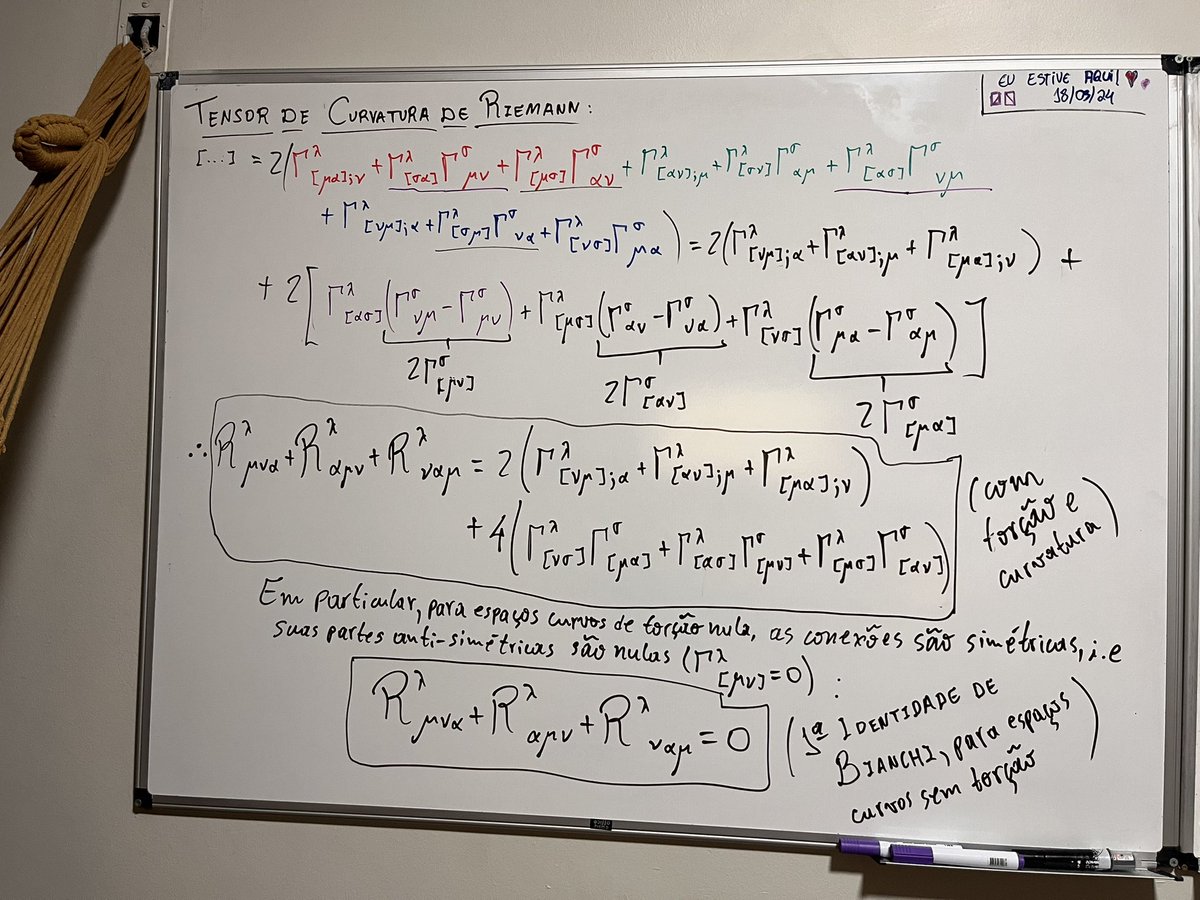 EU ESTIVE AQUI! ♥
18/03/24
TENSOR DE CURVATURA DE RIEMANN:
[...] = 2(Γ^λ_[μα];ν + Γ^λ_[σα] Γ^σ_μν + Γ^λ_[μσ] Γ^σ_αν + Γ^λ_[αν];μ + Γ^λ_[σν] Γ^σ_αμ + Γ^λ_[ασ] Γ^σ_νμ
+ Γ^λ_[νμ];α + Γ^λ_[σμ] Γ^σ_να + Γ^λ_[νσ] Γ^σ_μα) = 2(Γ^λ_[νμ];α + Γ^λ_[αν];μ + Γ^λ_[μα];ν) +
+ 2[Γ^λ_[ασ] (Γ^σ_νμ − Γ^σ_μν) + Γ^λ_[μσ] (Γ^σ_αν − Γ^σ_να) + Γ^λ_[νσ] (Γ^σ_μα − Γ^σ_αμ)]
2Γ^σ_[μν] 2Γ^σ_[αν] 2Γ^σ_[μα]
∴ R^λ_μνα + R^λ_αμν + R^λ_ναμ = 2(Γ^λ_[νμ];α + Γ^λ_[αν];μ + Γ^λ_[μα];ν)
+ 4(Γ^λ_[νσ] Γ^σ_[μα] + Γ^λ_[ασ] Γ^σ_[μν] + Γ^λ_[μσ] Γ^σ_[αν])
(com
torção e
curvatura)
Em particular, para espaços curvos de torção nula, as conexões são simétricas, i.e
suas partes anti-simétricas são nulas (Γ^λ_[μν] = 0) :
R^λ_μνα + R^λ_αμν + R^λ_ναμ = 0
(1ª IDENTIDADE DE
BIANCHI, para espaços
curvos sem torção)